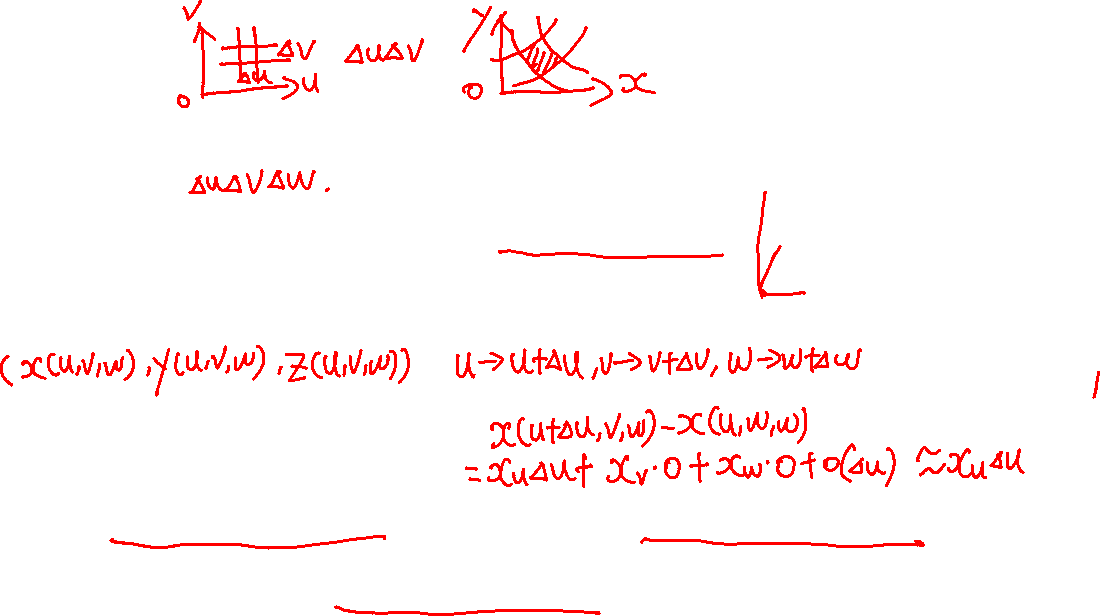 V ΔV Δu u 0 ΔuΔV y 0 x
ΔuΔVΔW.
(x(u,v,w),y(u,v,w),z(u,v,w)) u→u+Δu,v→v+Δv,w→w+Δw
x(u+Δu,v,w)-x(u,w,w)
=x_uΔu+x_v·0+x_w·0+o(Δu)≈x_uΔu